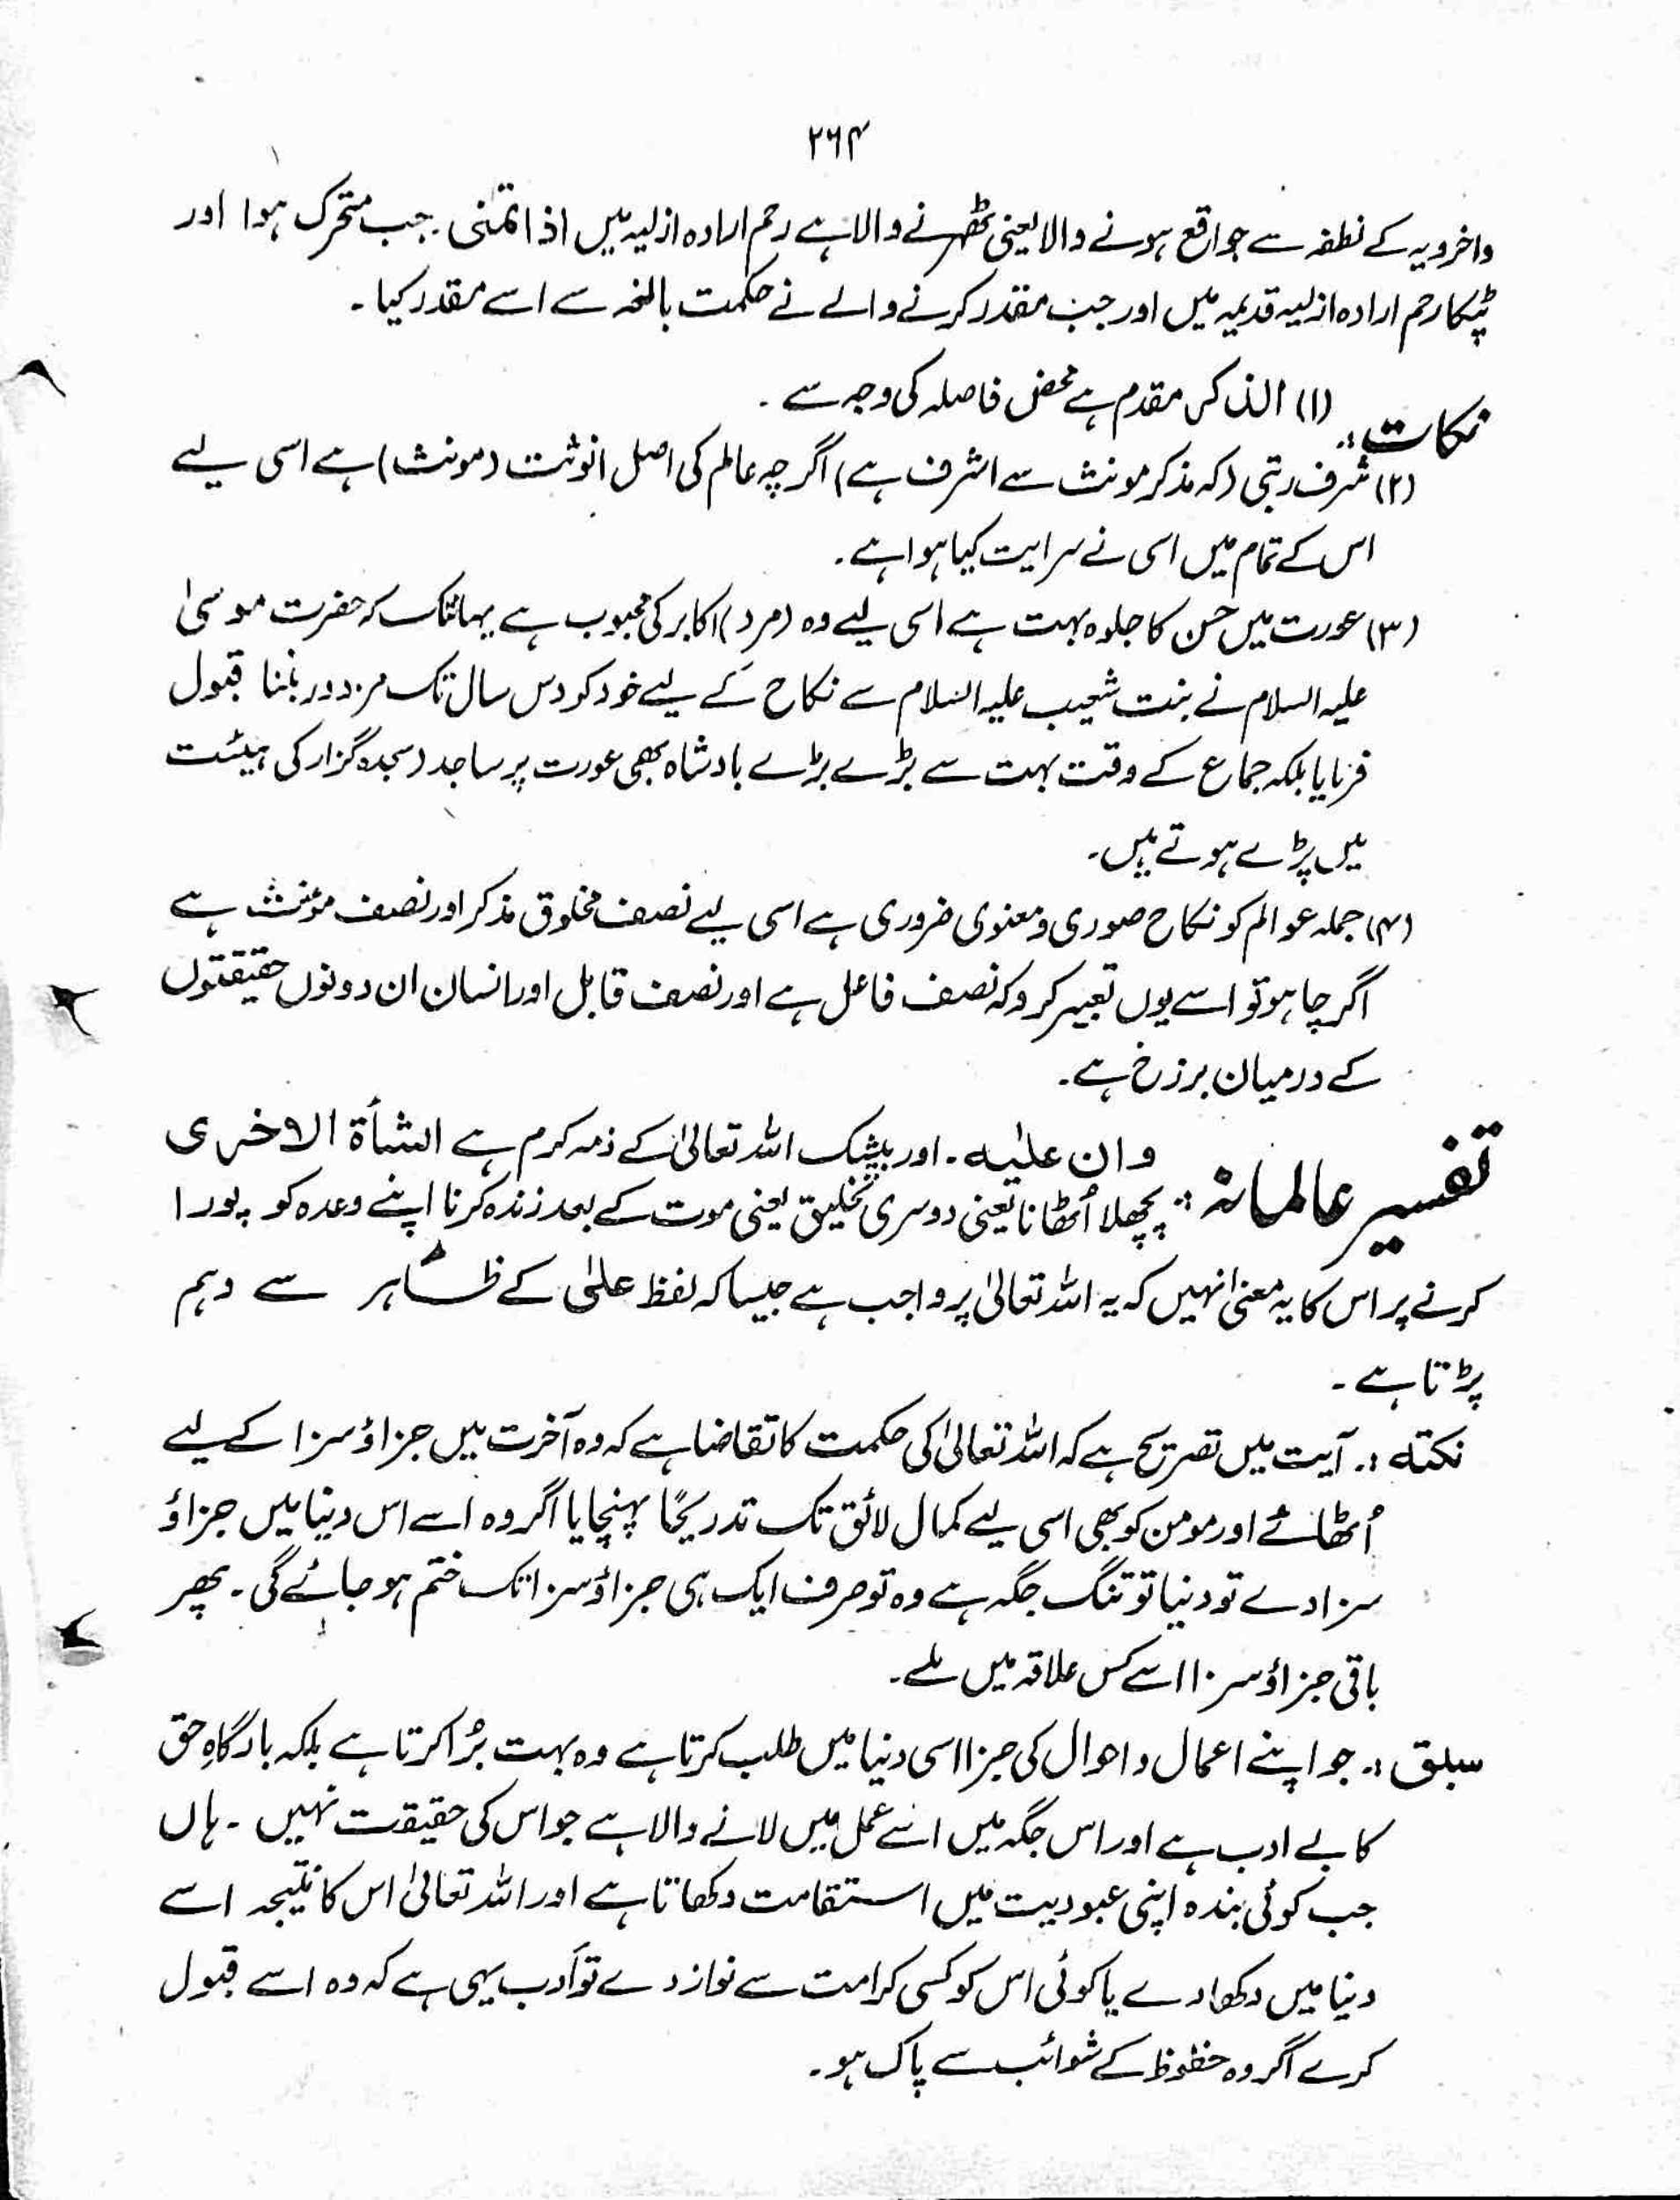 ۲۶۴
واخرویہ کے نطفہ سے جو واقع ہونے والا یعنی ٹھہرنے والا ہے رحم ارادہ ازلیہ میں اذا تمنٰی۔ جب متحرک ہوا اور
ٹپکا رحم ارادہ ازلیہ قدیمہ میں اور جب مقدر کرنے والے نے حکمت بالغہ سے اسے مقدر کیا۔
نکات :۔ (۱) الذکر مقدم ہے محض فاصلہ کی وجہ سے۔
(۲) شرف رتبی (کہ مذکر مونث سے اشرف ہے) اگرچہ عالم کی اصل انوثت (مونث) ہے اسی لیے
اس کے تمام میں اسی نے سرایت کیا ہوا ہے۔
(۳) عورت میں حسن کا جلوہ بہت ہے اسی لیے وہ (مرد) اکابر کی محبوب ہے یہانتک کہ حضرت موسیٰ
علیہ السلام نے بنت شعیب علیہ السلام سے نکاح کے لیے خود کو دس سال تک مزدور بننا قبول
فرمایا بلکہ جماع کے وقت بہت سے بڑے بڑے بادشاہ بھی عورت پر ساجد (سجدہ گزار کی ہیئت
میں پڑے ہوتے ہیں۔
(۴) جملہ عوالم کو نکاح صوری و معنوی ضروری ہے اسی لیے نصف مخلوق مذکر اور نصف مؤنث ہے
اگر چاہو تو اسے یوں تعبیر کرو کہ نصف فاعل ہے اور نصف قابل اور انسان ان دونوں حقیقتوں
کے درمیان برزخ ہے۔
تفسیر عالمانہ :۔ وان علیہ۔ اور بیشک اللہ تعالیٰ کے ذمہ کرم ہے النشأۃ الاخری
پچھلا اُٹھانا یعنی دوسری تخلیق یعنی موت کے بعد زندہ کرنا اپنے وعدہ کو پورا
کرنے پر اس کا یہ معنیٰ نہیں کہ یہ اللہ تعالیٰ پر واجب ہے جیسا کہ لفظ علیٰ کے ظاہر سے وہم
پڑتا ہے۔
نکتہ :۔ آیت میں تصریح ہے کہ اللہ تعالیٰ کی حکمت کا تقاضا ہے کہ وہ آخرت میں جزاؤ سزا کے لیے
اُٹھائے اور مومن کو بھی اسی لیے کمال لائق تک تدریجًا پہنچایا اگر وہ اسے اس دنیا میں جزاؤ
سزا دے تو دنیا تو تنگ جگہ ہے وہ تو صرف ایک ہی جزاؤ سزا تک ختم ہو جائے گی۔ پھر
باقی جزاؤ سزا اسے کس علاقہ میں ملے۔
سبق :۔ جو اپنے اعمال و احوال کی جزا اسی دنیا میں طلب کرتا ہے وہ بہت بُرا کرتا ہے بلکہ بارگاہِ حق
کا بے ادب ہے اور اس جگہ میں اسے عمل میں لانے والا ہے جو اس کی حقیقت نہیں۔ ہاں
جب کوئی بندہ اپنی عبودیت میں استقامت دکھاتا ہے اور اللہ تعالیٰ اس کا نتیجہ اسے
دنیا میں دکھا دے یا کوئی اس کو کسی کرامت سے نواز دے تو اَدب یہی ہے کہ وہ اسے قبول
کرے اگر وہ حظوظ کے شوائب سے پاک ہو۔